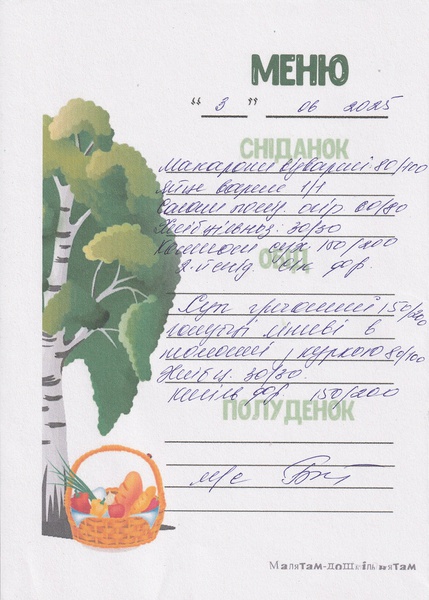 МЕНЮ
“ 3 ” 06 2025
СНІДАНОК
Макарони відварні 80/100
Яйце варене 1/1
Салат пом. огір 60/80
Хліб цільноз. 30/30
Компот сух 150/200
ОБІД
2-й снід. сік фр.
Суп гречаний 150/200
голубці ліниві в
томаті з куркою 80/100
Хліб ц. 30/30
кисіль фр 150/200
ПОЛУДЕНОК
м/с
Малятам-дошкільнятам